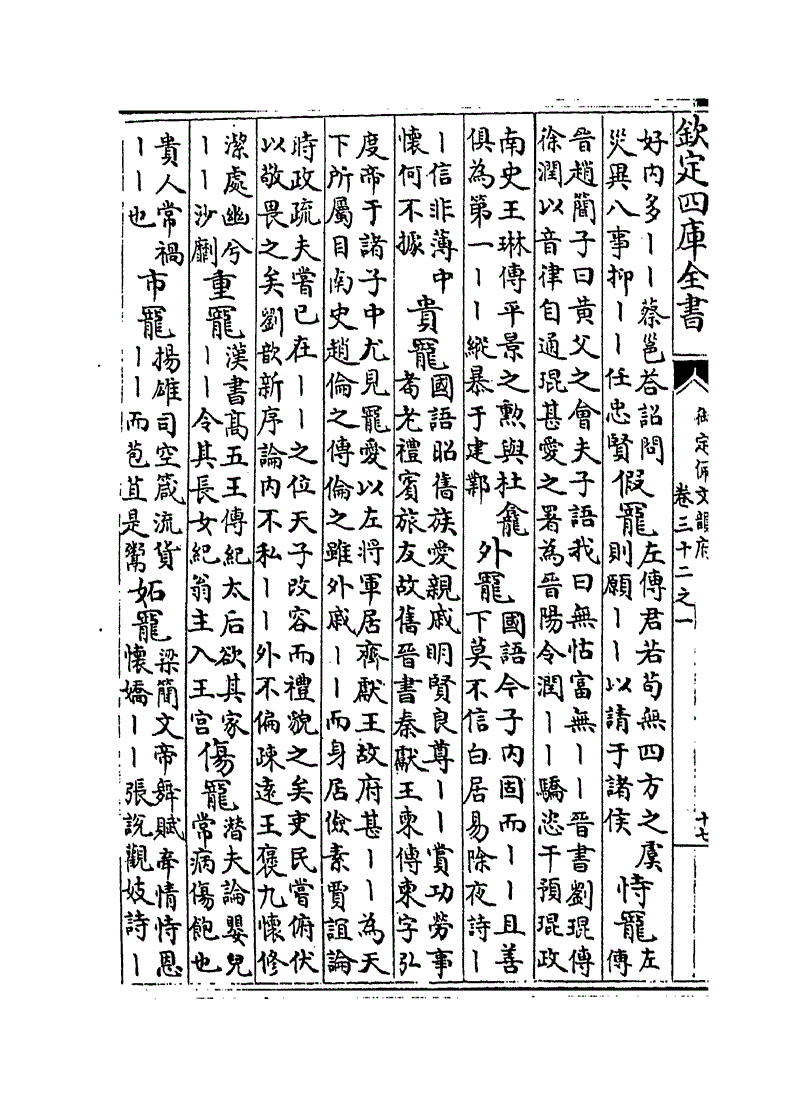 欽定四庫全書
御定佩文韻府
卷三十二之一
十七
好内多｜｜蔡邕答詔問
災異八事抑｜｜任忠賢
假寵
左傳君若苟無四方之虞
則願｜｜以請于諸侯
恃寵
左
傳
晉趙簡子曰黃父之會夫子語我曰無怙富無｜｜晉書劉琨傳
徐潤以音律自通琨甚愛之署為晉陽令潤｜｜驕恣干預琨政
南史王琳傳平景之勲與杜龕
俱為第一｜｜縱暴于建鄴
外寵
國語今子内固而｜｜且善
下莫不信白居易除夜詩｜
｜信非薄中
懷何不據
貴寵
國語昭舊族愛親戚明賢良尊｜｜賞功勞事
耇老禮賓旅友故舊晉書秦獻王柬傳柬字弘
度帝于諸子中尤見寵愛以左將軍居齊獻王故府甚｜｜為天
下所屬目南史趙倫之傳倫之雖外戚｜｜而身居儉素賈誼論
時政疏夫嘗已在｜｜之位天子改容而禮貌之矣吏民嘗俯伏
以敬畏之矣劉歆新序論内不私｜｜外不偏疎遠王褒九懷修
潔處幽兮
｜｜沙劘
重寵
漢書髙五王傳紀太后欲其家
｜｜令其長女紀翁主入王宫
傷寵
潛夫論嬰兒
常病傷飽也
貴人常禍
｜｜也
市寵
揚雄司空箴流貨
｜｜而苞苴是鬻
妬寵
梁簡文帝舞賦牽情恃恩
懷嬌｜｜張説觀妓詩｜